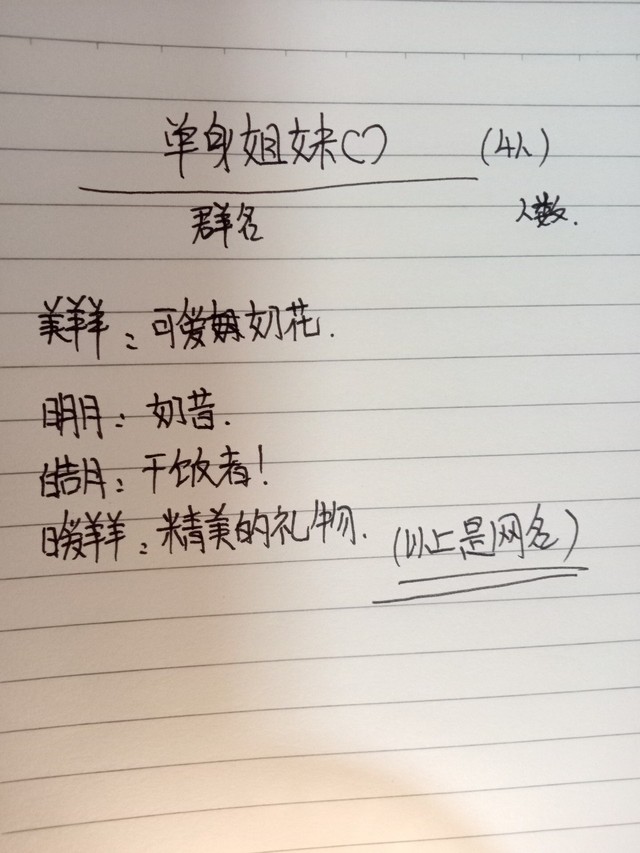 单身姐妹♡ (4人)
群名 人数.
美羊羊:可爱奶花.
明月:奶昔.
皓月:干饭者!
暖羊羊:精美的礼物.
(以上是网名)